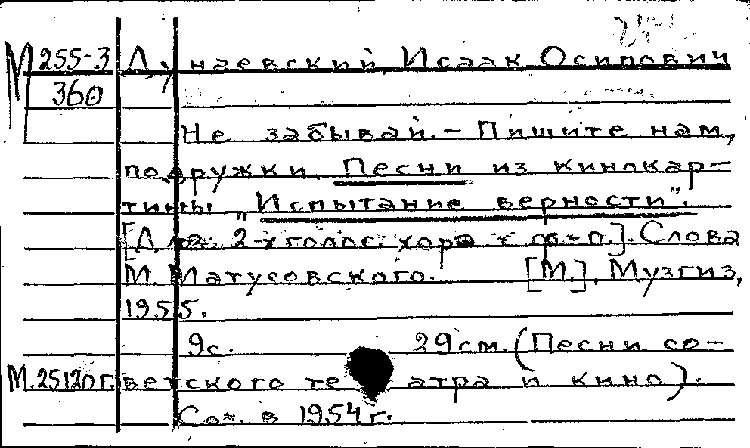 М 255-3 Дунаевский, Исаак Осипович
360
Не забывай. – Пишите нам,
подружки. Песни из кинокар-
тины „Испытание верности".
[Для 2-х голос. хора с ф-п.]. Слова
М. Матусовского. [М.], Музгиз,
1955.
9с. 29см. (Песни со-
М.25120г. ветского театра и кино).
Соч. в 1954г.